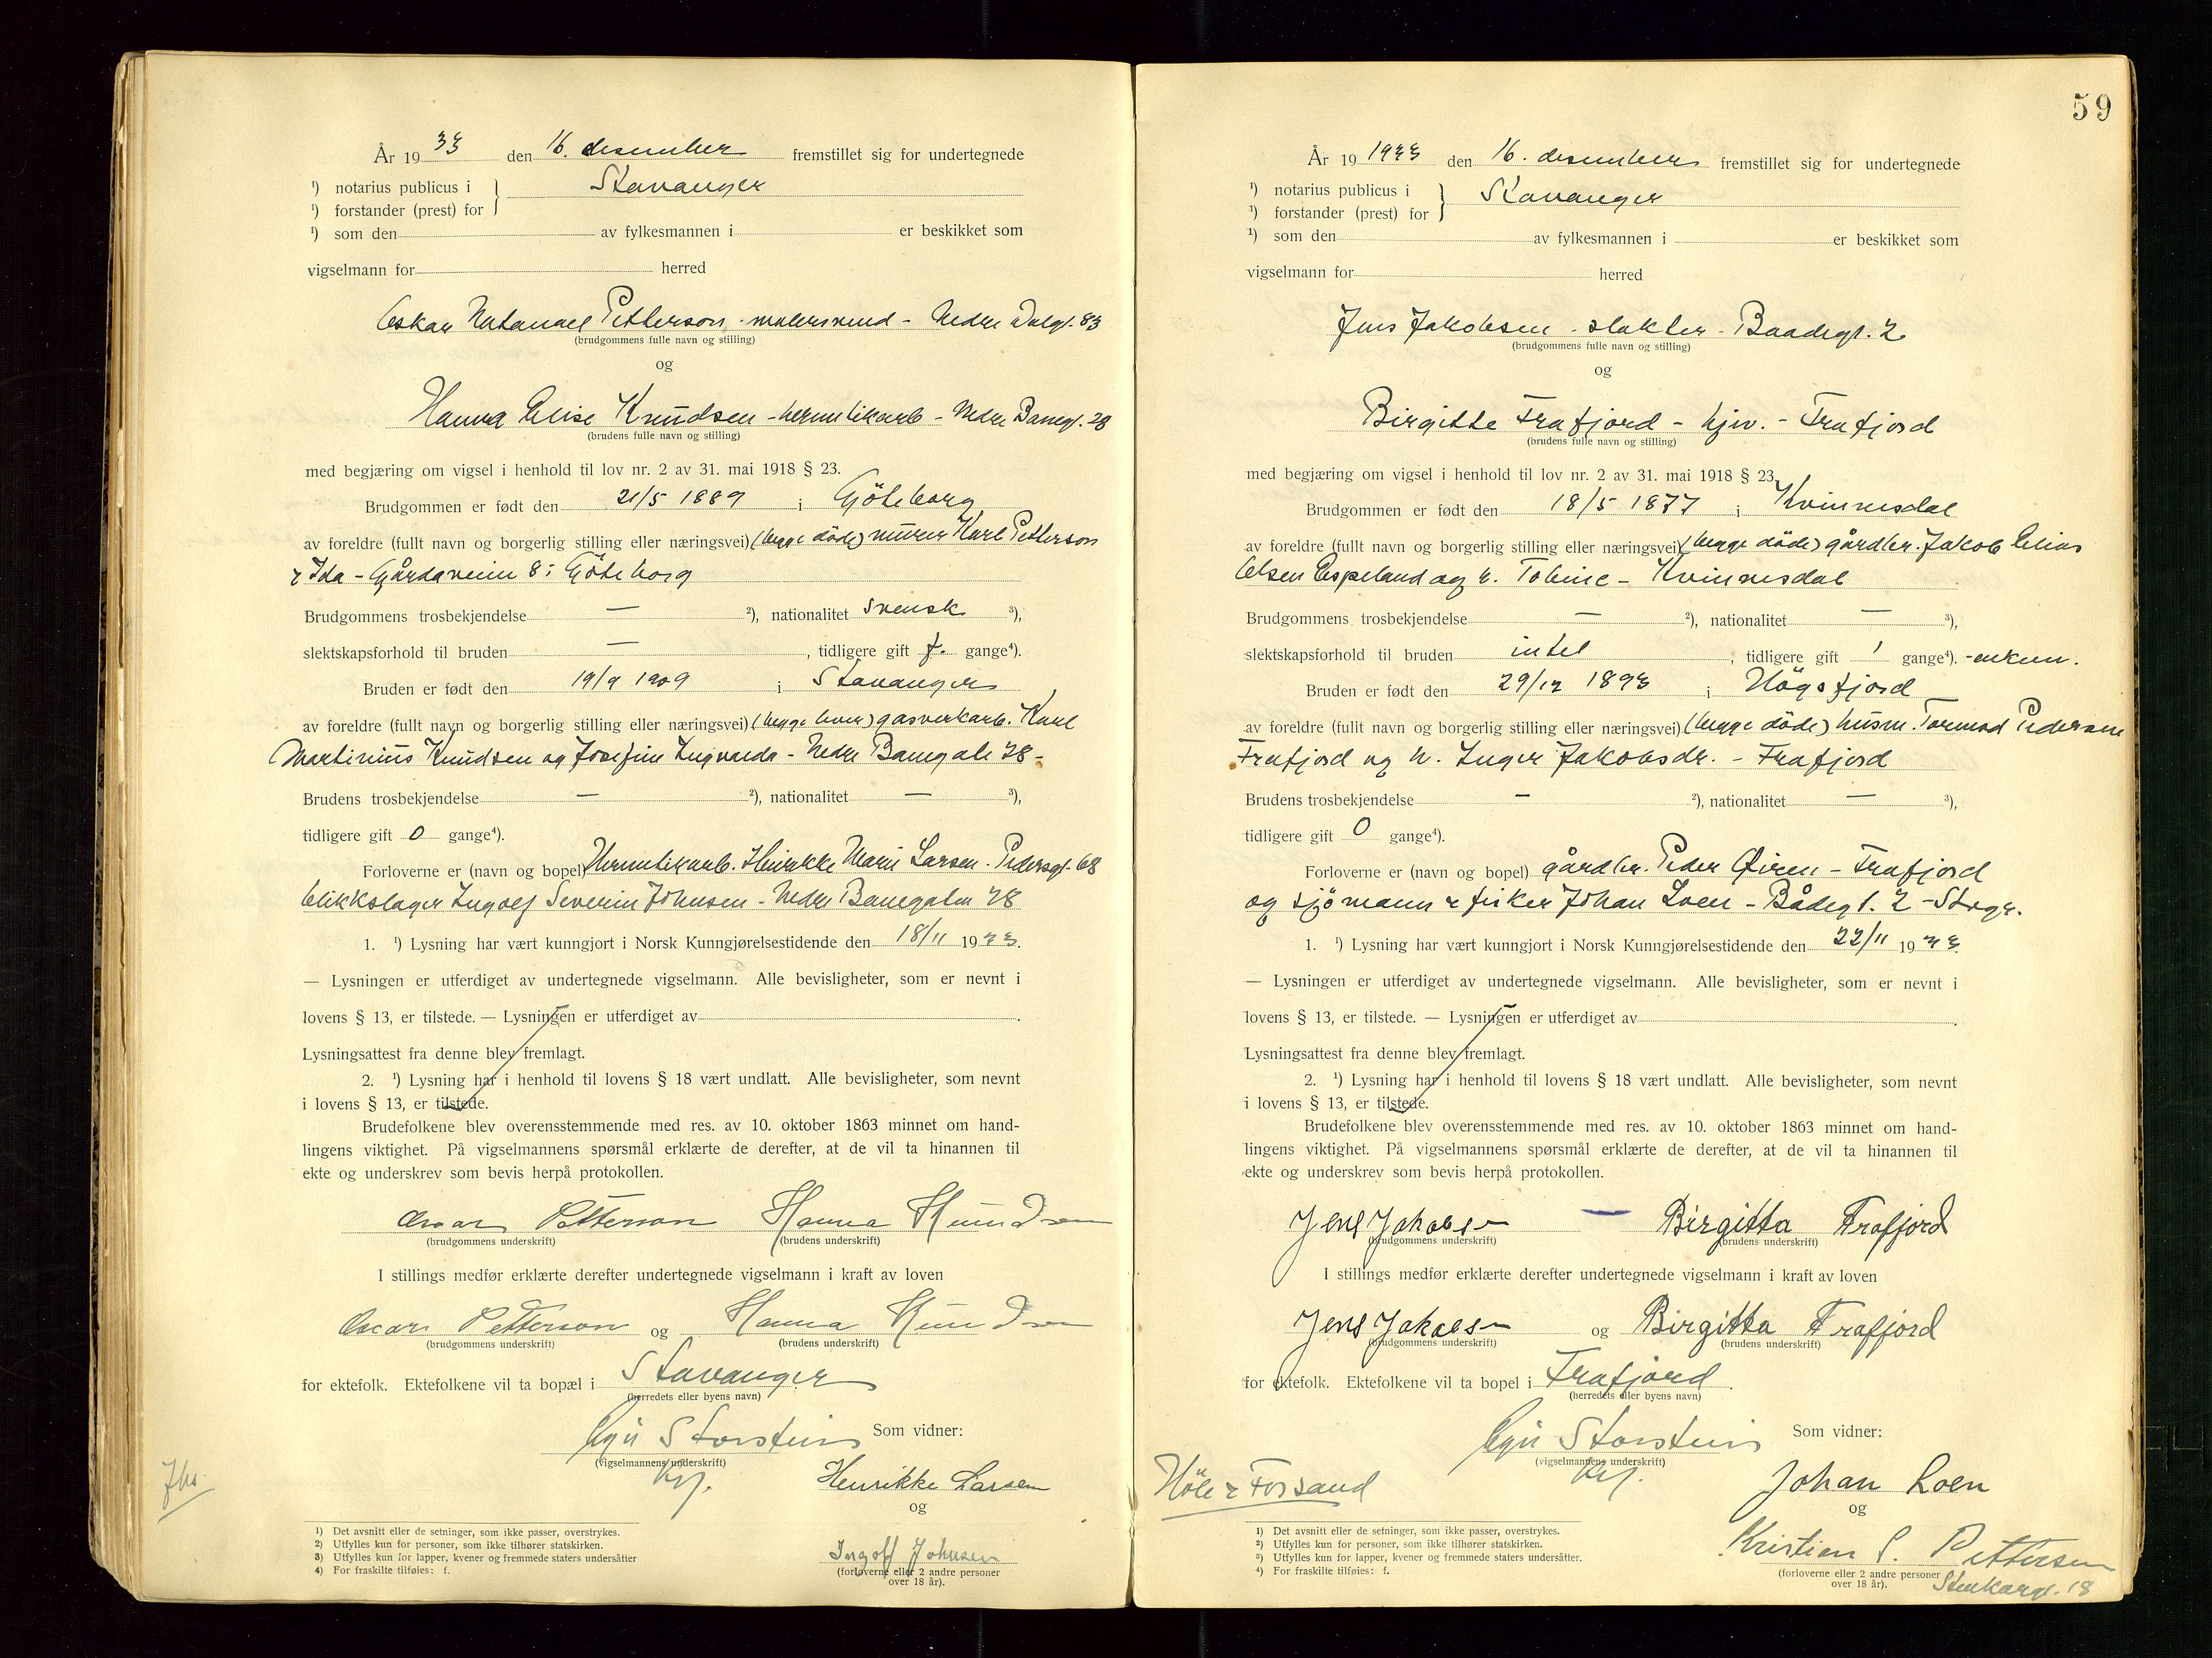 År 19 33 den 16. desember fremstillet sig for undertegnede
¹) notarius publicus i } Stavanger
¹) forstander (prest) for
¹) som den av fylkesmannen i er beskikket som
vigselmann for herred
Oskar Natanael Petterson - malersvend - Nedre Dalgt. 83
(brudgommens fulle navn og stilling)
og
Hanna Elise Knudsen - hermetikarb - Nedre Banegt. 28
(brudens fulle navn og stilling)
med begjæring om vigsel i henhold til lov nr. 2 av 31. mai 1918 § 23.
Brudgommen er født den 21/5 1889 i Göteborg
av foreldre (fullt navn og borgerlig stilling eller næringsvei) (begge döde) murer Karl Petterson
& Ida - Gårdaveien 8; Göteborg
Brudgommens trosbekjendelse — ²), nationalitet svensk ³),
slektskapsforhold til bruden — , tidligere gift f. gange⁴).
Bruden er født den 19/9 1909 i Stavanger
av foreldre (fullt navn og borgerlig stilling eller næringsvei) (begge lever) gasverkarb. Karl
Martinius Knudsen og Josefine Ingvarda - Nedre Banegate 28 -
Brudens trosbekjendelse — ²), nationalitet — ³),
tidligere gift 0 gange⁴).
Forloverne er (navn og bopel) Hermetikarb. Henrikke Marie Larsen - Pedersgt. 68
blikkslager Ingolf Severin Johnsen - Nedre Banegaten 28
1. ¹) Lysning har vært kunngjort i Norsk Kunngjørelsestidende den 18/11 19 33.
— Lysningen er utferdiget av undertegnede vigselmann. Alle bevisligheter, som er nevnt i
lovens § 13, er tilstede. — Lysningen er utferdiget av .
Lysningsattest fra denne blev fremlagt.
2. ¹) Lysning har i henhold til lovens § 18 vært undlatt. Alle bevisligheter, som nevnt
i lovens § 13, er tilstede.
Brudefolkene blev overensstemmende med res. av 10. oktober 1863 minnet om hand-
lingens viktighet. På vigselmannens spørsmål erklærte de derefter, at de vil ta hinannen til
ekte og underskrev som bevis herpå protokollen.
Oscar Petterson Hanna Knudsen
(brudgommens underskrift) (brudens underskrift)
I stillings medfør erklærte derefter undertegnede vigselmann i kraft av loven
Oscar Petterson og Hanna Knudsen
(brudgommens underskrift) (brudens underskrift)
for ektefolk. Ektefolkene vil ta bopæl i Stavanger
(herredets eller byens navn)
Storstein Som vidner:
(vigselmannens underskrift)
Henrikke Larsen
og
Ingolf Johnsen
(forloverne eller 2 andre personer
over 18 år).
¹) Det avsnitt eller de setninger, som ikke passer, overstrykes.
²) Utfylles kun for personer, som ikke tilhører statskirken.
³) Utfylles kun for lapper, kvener og fremmede staters undersåtter
⁴) For fraskilte tilføies: f.
59
År 19 1933 den 16. desember fremstillet sig for undertegnede
¹) notarius publicus i } Stavanger
¹) forstander (prest) for
¹) som den av fylkesmannen i er beskikket som
vigselmann for herred
Jens Jakobsen - slakter - Baadegt. 2
(brudgommens fulle navn og stilling)
og
Birgitte Frafjord - hjv. - Frafjord
(brudens fulle navn og stilling)
med begjæring om vigsel i henhold til lov nr. 2 av 31. mai 1918 § 23.
Brudgommen er født den 18/5 1877 i Kvinnesdal
av foreldre (fullt navn og borgerlig stilling eller næringsvei) (begge döde) gårdbr. Jakob Elias
Olsen Espeland og h. Tobine - Kvinnesdal
Brudgommens trosbekjendelse — ²), nationalitet — ³),
slektskapsforhold til bruden intet , tidligere gift 1 gange⁴). - enkem.
Bruden er født den 29/12 1893 i Högsfjord
av foreldre (fullt navn og borgerlig stilling eller næringsvei) (begge döde) husm. Tormod Pedersen
Frafjord og h. Inger Jakobsdr. - Frafjord
Brudens trosbekjendelse — ²), nationalitet — ³),
tidligere gift 0 gange⁴).
Forloverne er (navn og bopel) gårdbr. Peder Øiren - Frafjord
og sjömann & fisker Johan Loen - Bådegt. 2 - Stvgr.
1. ¹) Lysning har vært kunngjort i Norsk Kunngjørelsestidende den 22/11 19 33.
— Lysningen er utferdiget av undertegnede vigselmann. Alle bevisligheter, som er nevnt i
lovens § 13, er tilstede. — Lysningen er utferdiget av .
Lysningsattest fra denne blev fremlagt.
2. ¹) Lysning har i henhold til lovens § 18 vært undlatt. Alle bevisligheter, som nevnt
i lovens § 13, er tilstede.
Brudefolkene blev overensstemmende med res. av 10. oktober 1863 minnet om hand-
lingens viktighet. På vigselmannens spørsmål erklærte de derefter, at de vil ta hinannen til
ekte og underskrev som bevis herpå protokollen.
Jens Jakobsen — Birgitta Frafjord
(brudgommens underskrift) (brudens underskrift)
I stillings medfør erklærte derefter undertegnede vigselmann i kraft av loven
Jens Jakobsen og Birgitta Frafjord
(brudgommens underskrift) (brudens underskrift)
for ektefolk. Ektefolkene vil ta bopel i Frafjord.
(herredets eller byens navn)
Storstein Som vidner:
(vigselmannens underskrift)
Höle & Forsand
Johan Loen
og
Kristian S. Pettersen
(forloverne eller 2 andre personer
over 18 år). Stenkargt. 18
¹) Det avsnitt eller de setninger, som ikke passer, overstrykes.
²) Utfylles kun for personer, som ikke tilhører statskirken.
³) Utfylles kun for lapper, kvener og fremmede staters undersåtter.
⁴) For fraskilte tilføies: f.